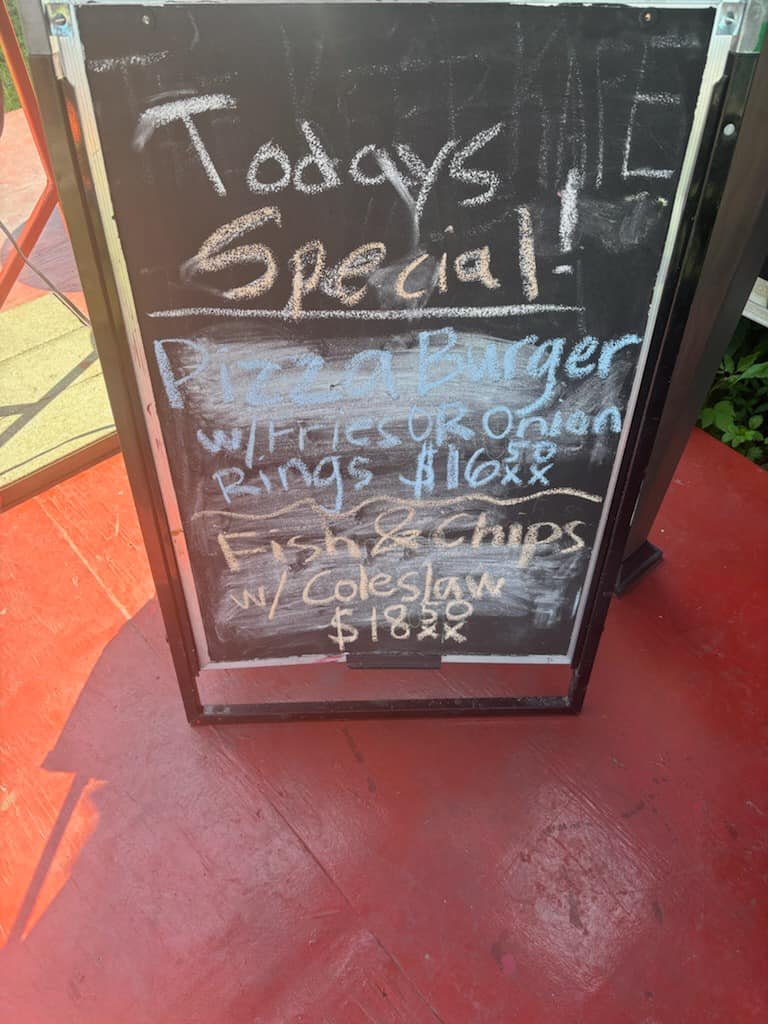 Todays
Special!
Pizza Burger
w/Fries OR Onion
Rings $16 50
xx
Fish & Chips
w/ Coleslaw
$18 50
xx